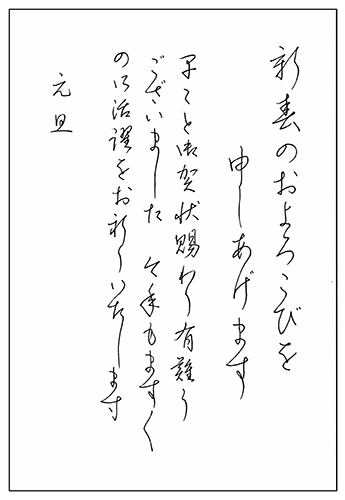 新春のおよろこびを
申しあげます
早々と御賀状賜わり有難う
ございました 今年もますく
の御活躍をお祈りいたします
元旦